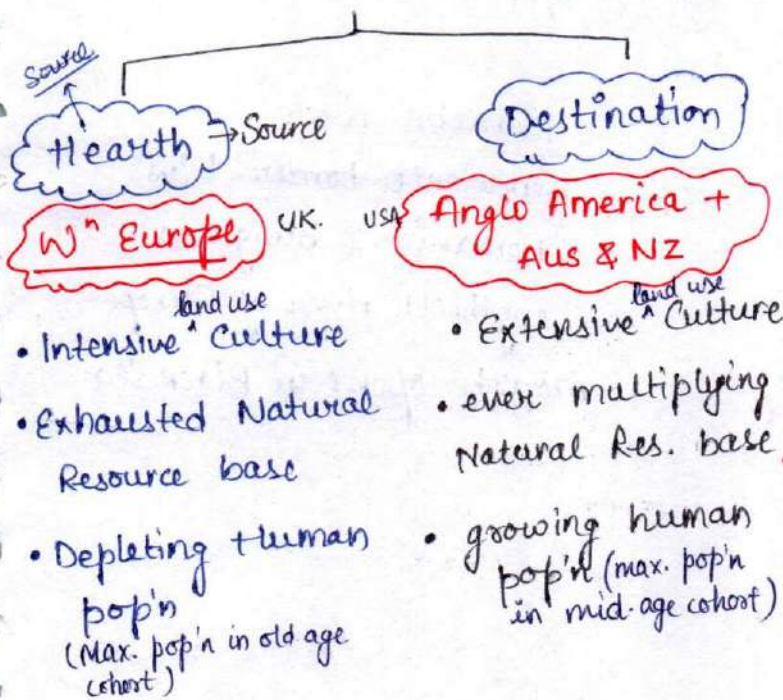 Source
Hearth → Source
Wⁿ Europe
UK.
• Intensive ^ land use Culture
• Exhausted Natural
Resource base
• Depleting Human
pop'n
(Max. pop'n in old age
cohort)
Destination
USA
Anglo America +
Aus & NZ
• Extensive ^ land use Culture
• ever multiplying
Natural Res. base
• growing human
pop'n (max. pop'n
in mid-age cohort)